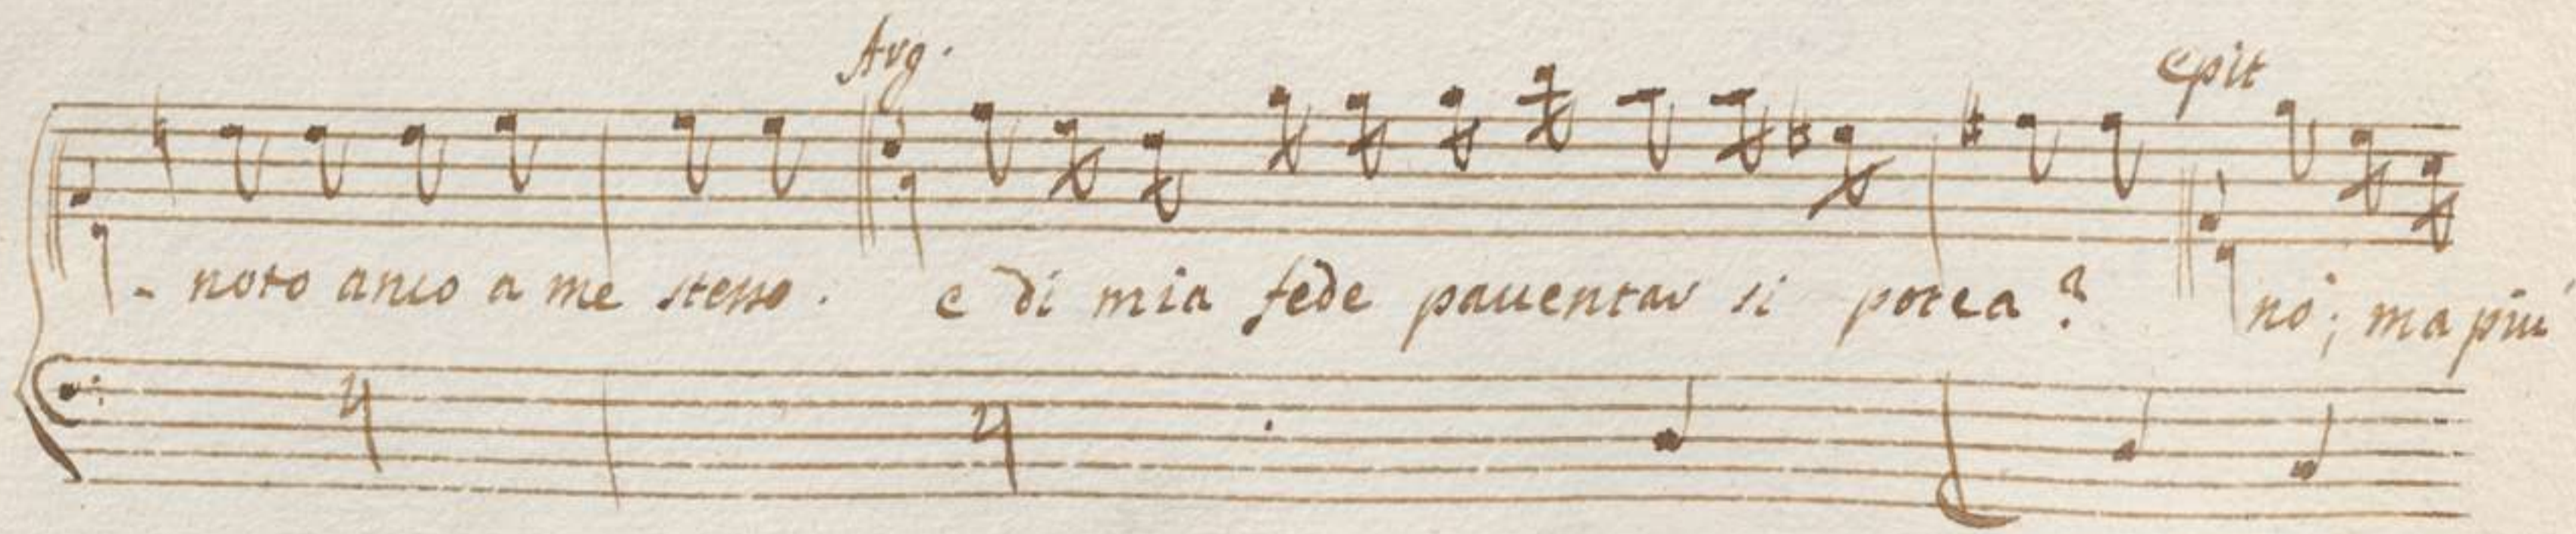 Arg. epit
- noto anco a me stesso. e di mia fede pauentar si potea? nò; ma piu